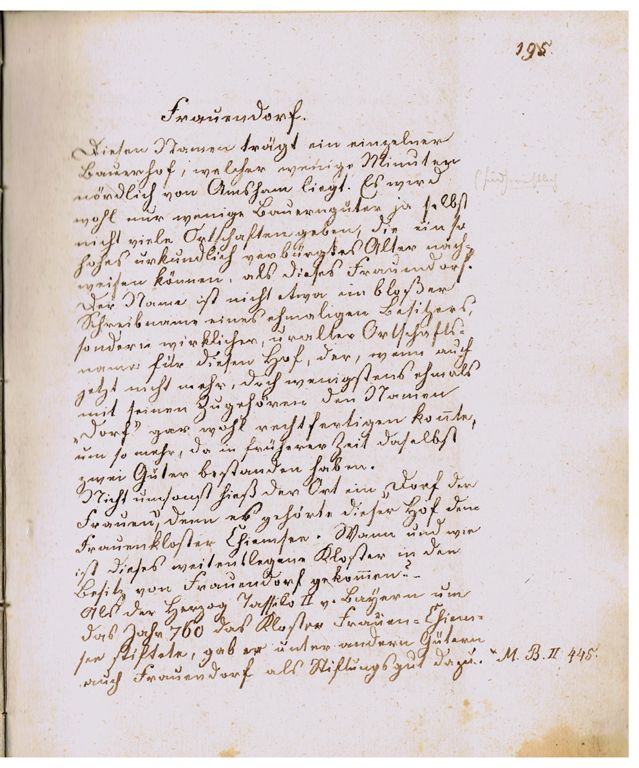 195.
Frauendorf.
Diesen Namen trägt ein einzelner
Bauerhof, welcher wenige Minuten
nördlich von Amsham liegt. Es wird
wohl nur wenige Bauerngüter ja selbst
nicht viele Ortschaften geben, die ein so
hohes urkundlich verbürgtes Alter nach-
weisen können, als dieses Frauendorf.
Der Name ist nicht etwa ein bloßer
Schreibname eines ehmaligen Besitzers,
sondern wirklicher, uralter Ortschafts-
name für diesen Hof, der, wenn auch
jetzt nicht mehr, doch wenigstens ehmals
mit seinen Zugehören den Namen
„Dorf" gar wohl rechtfertigen konnte,
um so mehr, da in früherer Zeit daselbst
zwei Güter bestanden haben.
Nicht umsonst hieß der Ort ein „Dorf der
Frauen", denn es gehörte dieser Hof dem
Frauenkloster Chiemsee. Wann und wie
ist dieses weitentlegene Kloster in den
Besitz von Frauendorf gekommen? –
Als der Herzog Tassilo II v. Bayern um
das Jahr 760 das Kloster Frauen-Chiem-
see stiftete, gab er unter andern Gütern
auch Frauendorf als Stiftungsgut dazu. M. B. II 445.